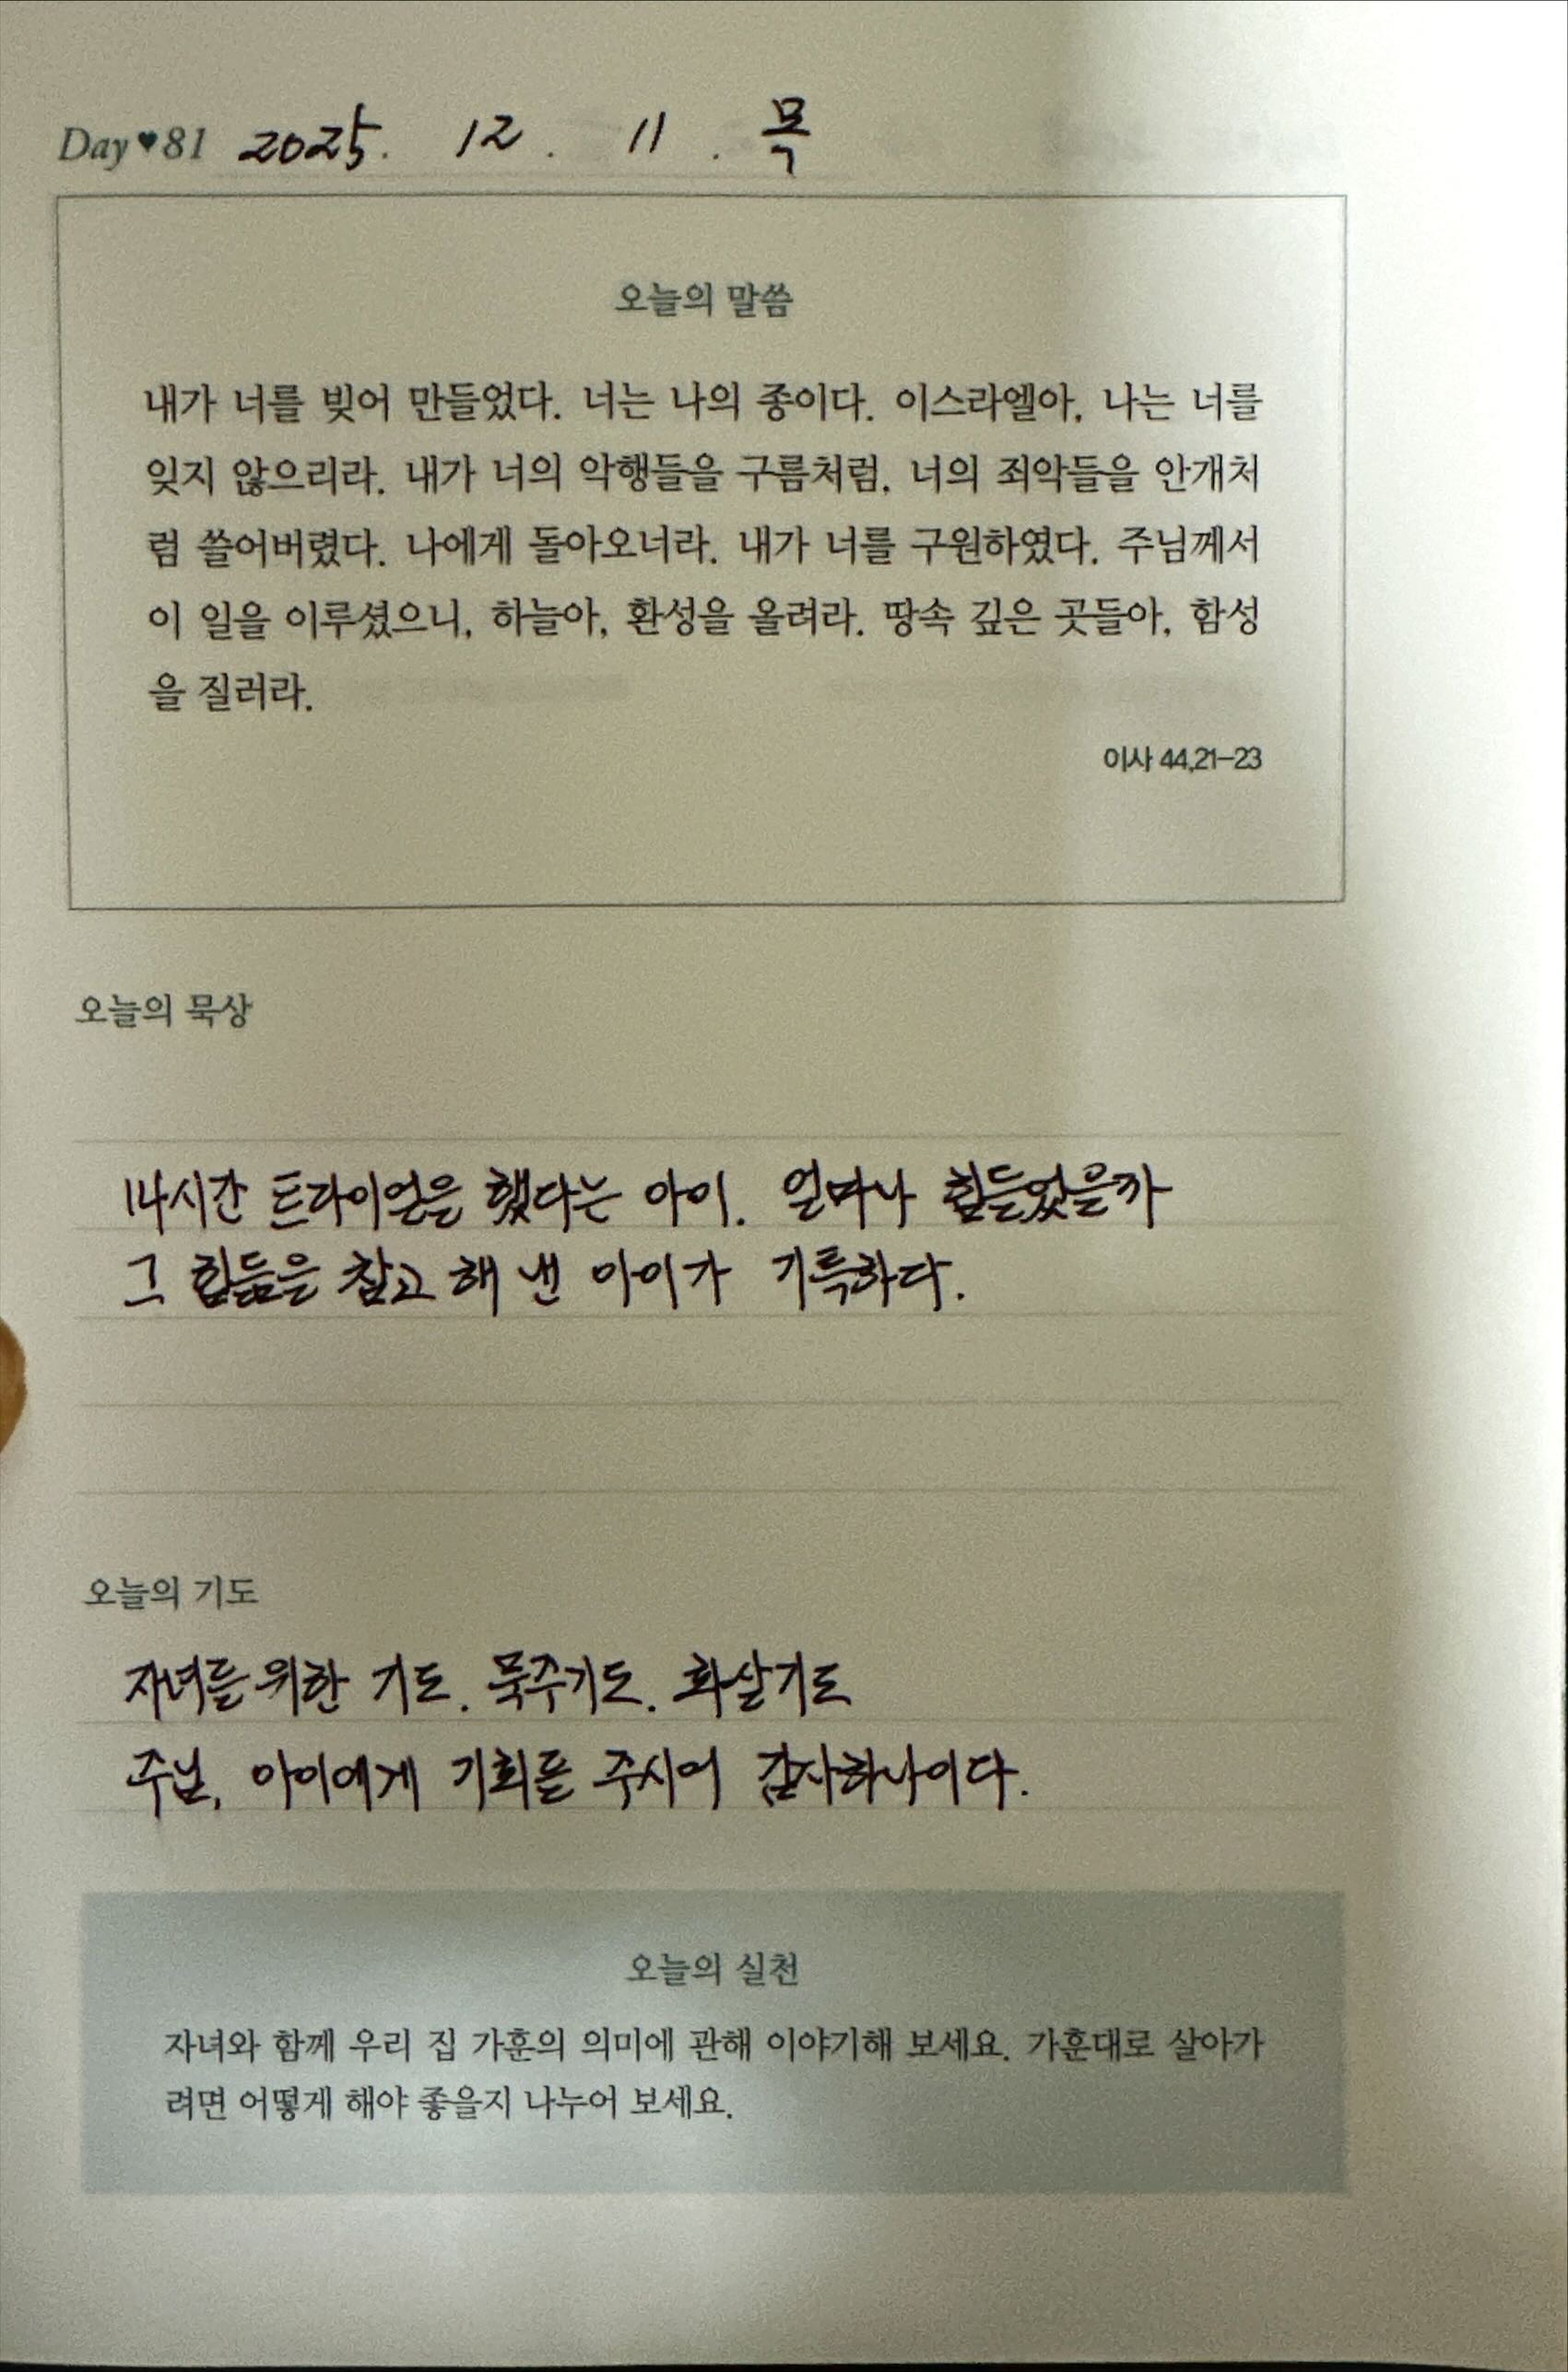 Day♥81 2025. 12. 11. 목
오늘의 말씀
내가 너를 빚어 만들었다. 너는 나의 종이다. 이스라엘아, 나는 너를
잊지 않으리라. 내가 너의 악행들을 구름처럼, 너의 죄악들을 안개처
럼 쓸어버렸다. 나에게 돌아오너라. 내가 너를 구원하였다. 주님께서
이 일을 이루셨으니, 하늘아, 환성을 올려라. 땅속 깊은 곳들아, 함성
을 질러라.
이사 44,21-23
오늘의 묵상
14시간 트라이얼을 했다는 아이. 얼마나 힘들었을까
그 힘듦은 참고 해 낸 아이가 기특하다.
오늘의 기도
자녀를 위한 기도. 묵주기도. 화살기도
주님, 아이에게 기회를 주시어 감사하나이다.
오늘의 실천
자녀와 함께 우리 집 가훈의 의미에 관해 이야기해 보세요. 가훈대로 살아가
려면 어떻게 해야 좋을지 나누어 보세요.